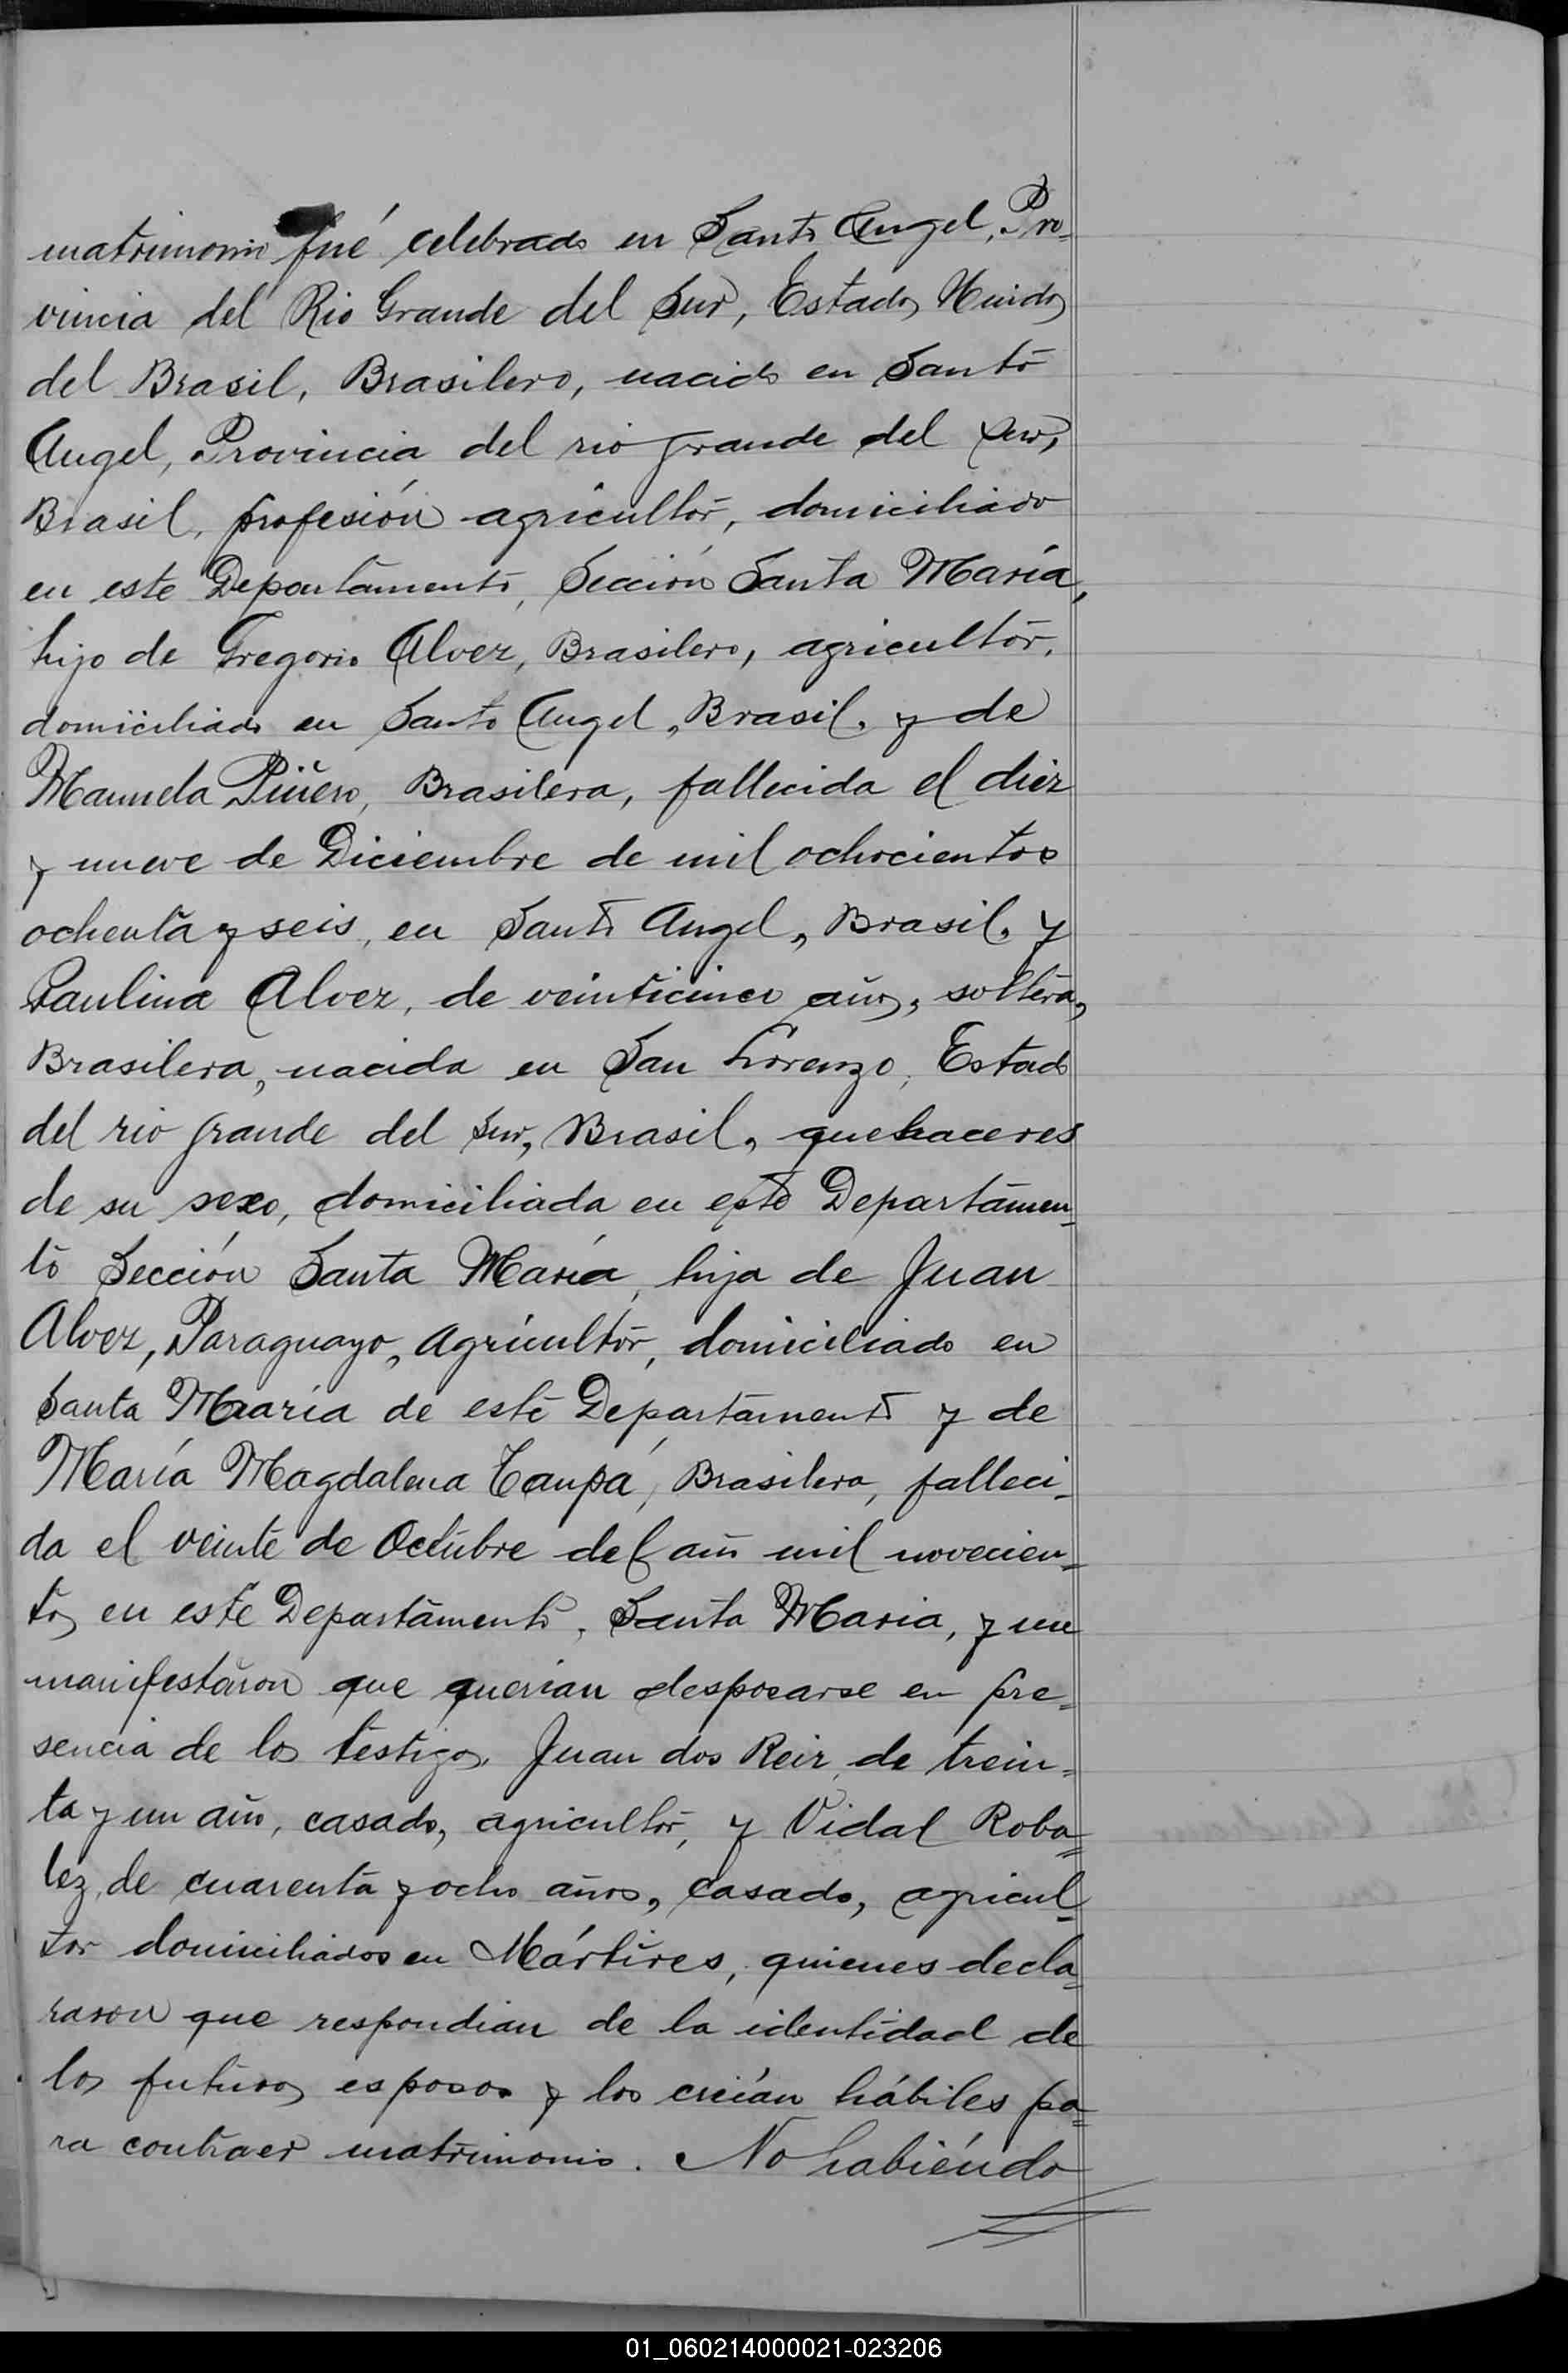 matrimonio fué celebrado en Santo Angel, Pro-
vincia del Rio Grande del Sur, Estados Unidos
del Brasil, Brasilero, nacido en Santo
Angel, Provincia del rio grande del Sur,
Brasil, profesión agricultor, domiciliado
en este Departamento, Sección Santa María,
hijo de Gregorio Alvez, Brasilero, agricultor,
domiciliado en Santo Angel, Brasil, y de
Manuela Piñero, Brasilera, fallecida el diez
y nueve de Diciembre de mil ochocientos
ochenta y seis, en Santo Angel, Brasil, y
Paulina Alvez, de veinticinco años, soltera,
Brasilera, nacida en San Lorenzo, Estado
del rio grande del Sur, Brasil, quehaceres
de su sexo, domiciliada en este Departamen-
to Sección Santa María, hija de Juan
Alvez, Paraguayo, agricultor, domiciliado en
Santa María de este Departamento y de
María Magdalena Taupá, Brasilera, falleci-
da el veinte de Octubre del año mil novecien-
tos en este Departamento, Santa Maria, y me
manifestaron que querian desposarse en pre-
sencia de los testigos, Juan dos Reiz, de trein-
ta y un año, casado, agricultor, y Vidal Roba-
lez, de cuarenta y ocho años, casado, agricul-
tor domiciliados en Mártires, quienes decla-
raron que respondian de la identidad de
los futuros esposos y los creían hábiles pa-
ra contraer matrimonio. No habiéndo
01_060214000021-023206